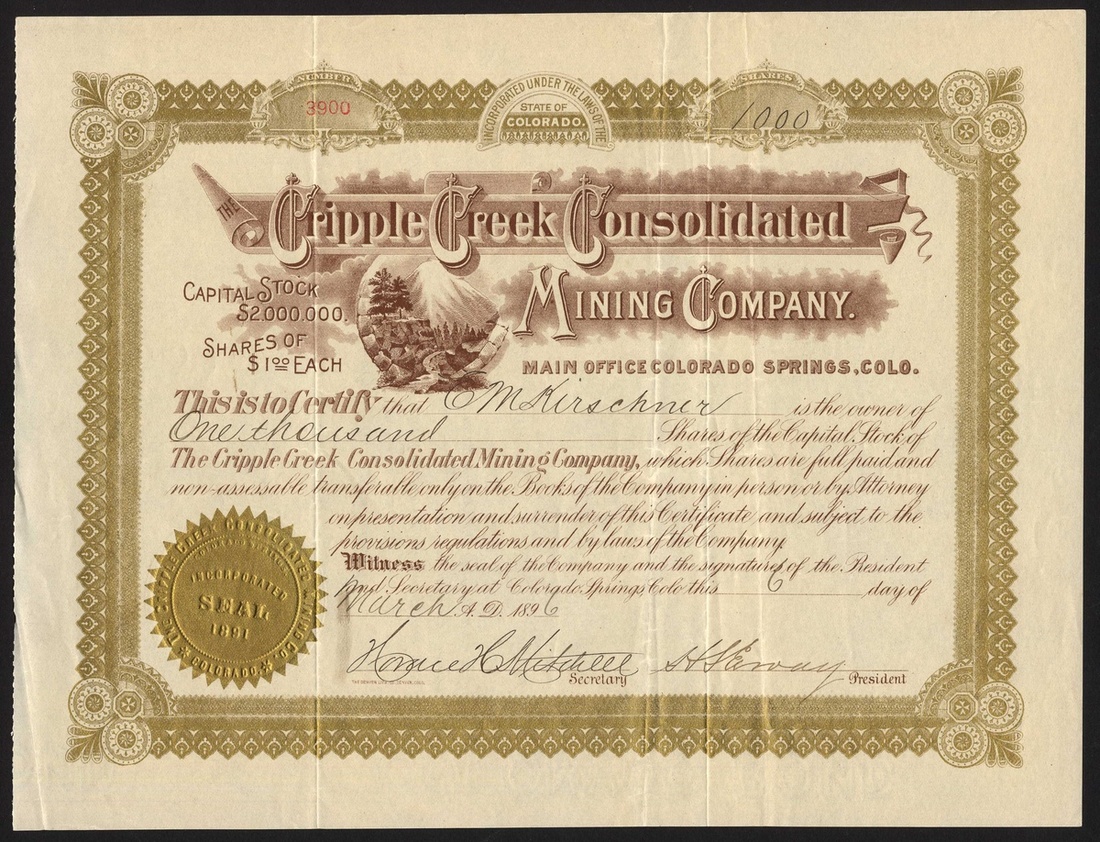 NUMBER
3900
INCORPORATED UNDER THE LAWS OF THE
STATE OF
COLORADO.
SHARES
1000
THE Cripple Creek Consolidated
MINING COMPANY.
CAPITAL STOCK
$2.000.000.
SHARES OF
$1.00 EACH
MAIN OFFICE COLORADO SPRINGS, COLO.
This is to Certify that C M Kirschner is the owner of
One thousand Shares of the Capital Stock of
The Cripple Creek Consolidated Mining Company, which Shares are full paid and
non-assessable transferable only on the Books of the Company in person or by Attorney
on presentation and surrender of this Certificate and subject to the
provisions regulations and by laws of the Company.
Witness the seal of the Company and the signatures of the President
and Secretary at Colorado Springs, Colo this 6 day of
March A.D. 1896
THE CRIPPLE CREEK CONSOLIDATED MINING CO.
INCORPORATED
SEAL
1891
COLORADO
Horace H. Mitchell
Secretary
President